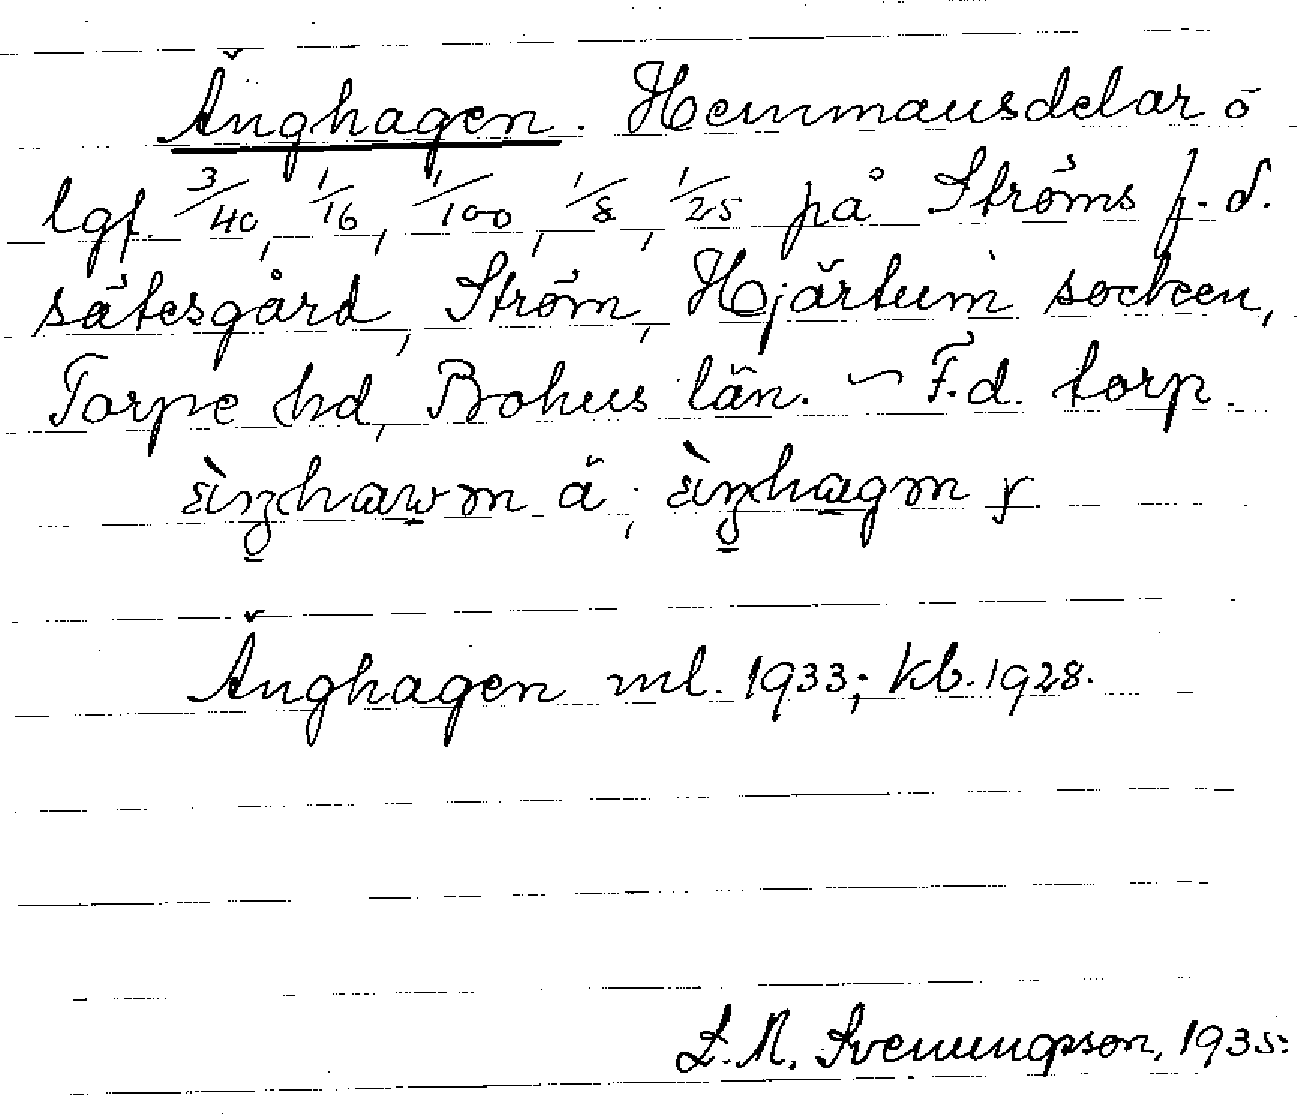 Änghagen. Hemmansdelar o
lgf. 3/40, 1/16, 1/100, 1/8, 1/25 på Ströms f.d.
sätesgård, Ström, Hjärtum socken,
Torpe hd, Bohus län. – F.d. torp.
ä;
Änghagen ml. 1933; kb. 1928.
S. M. Svenungsson, 1935.